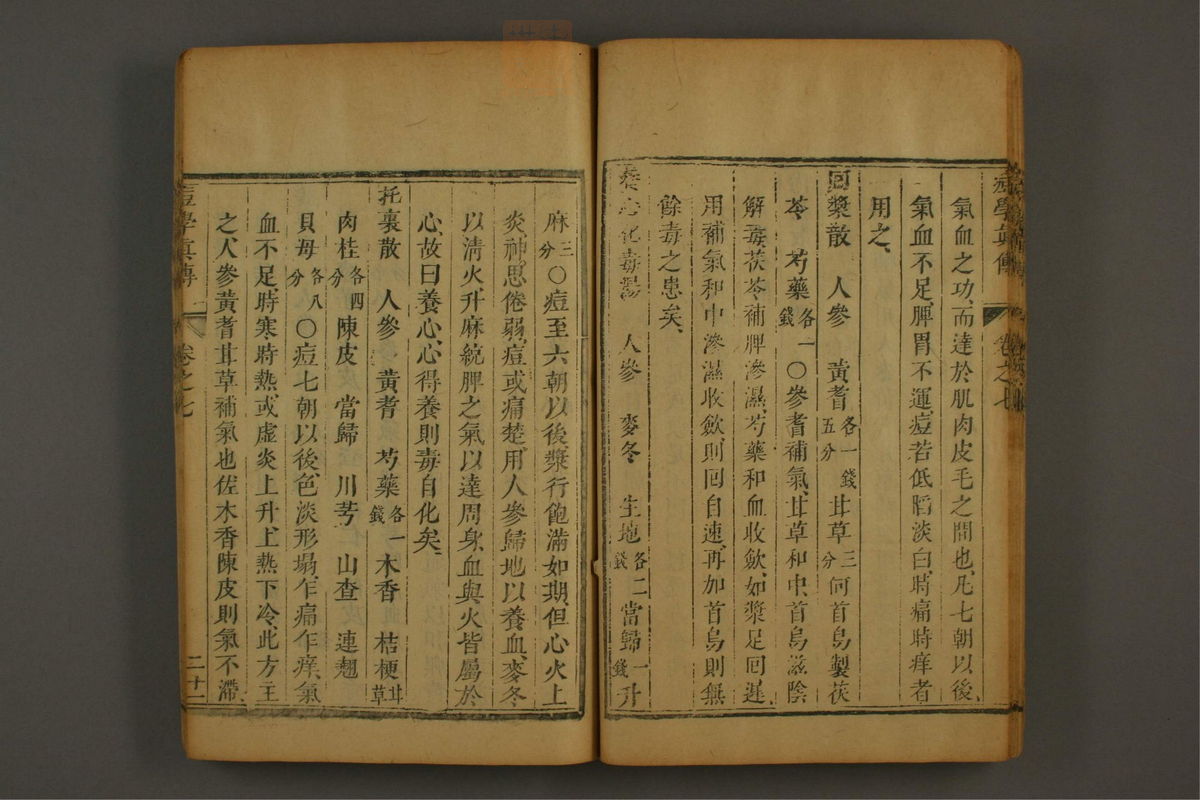 痘學眞傳 卷之七
氣血之功、而達於肌肉皮毛之間也、凡七朝以後、
氣血不足、脾胃不運、痘若低䧟淡白、時痛時痒者
用之、
囘漿散 人參 黃耆各一錢五分 甘草三分 何首烏製 茯
苓 芍藥各一錢 〇參耆補氣、甘草和中、首烏滋陰
解毒、茯苓補脾滲濕、芍藥和血收斂、如漿足囘遲、
用補氣和中、滲濕收斂、則囘自速、再加首烏、則無
餘毒之患矣、
養心化毒湯 人參 麥冬 生地各二錢 當歸一錢 升
麻三分 〇痘至六朝以後、漿行飽滿如期、但心火上
炎、神思倦弱、痘或痛楚、用人參歸地以養血、麥冬
以清火、升麻統脾之氣、以達周身、血與火皆屬於
心、故曰養心、心得養則毒自化矣、
托裏散 人參 黃耆 芍藥各一錢 木香 桔梗 甘草
肉桂各四分 陳皮 當歸 川芎 山查 連翹
貝母各八分 〇痘七朝以後、色淡形塌、乍痛乍痒、氣
血不足、時寒時熱、或虛炎上升、上熱下冷、此方主
之、人參黃耆甘草補氣也、佐木香陳皮、則氣不滯、
痘學眞傳 卷之七 二十一